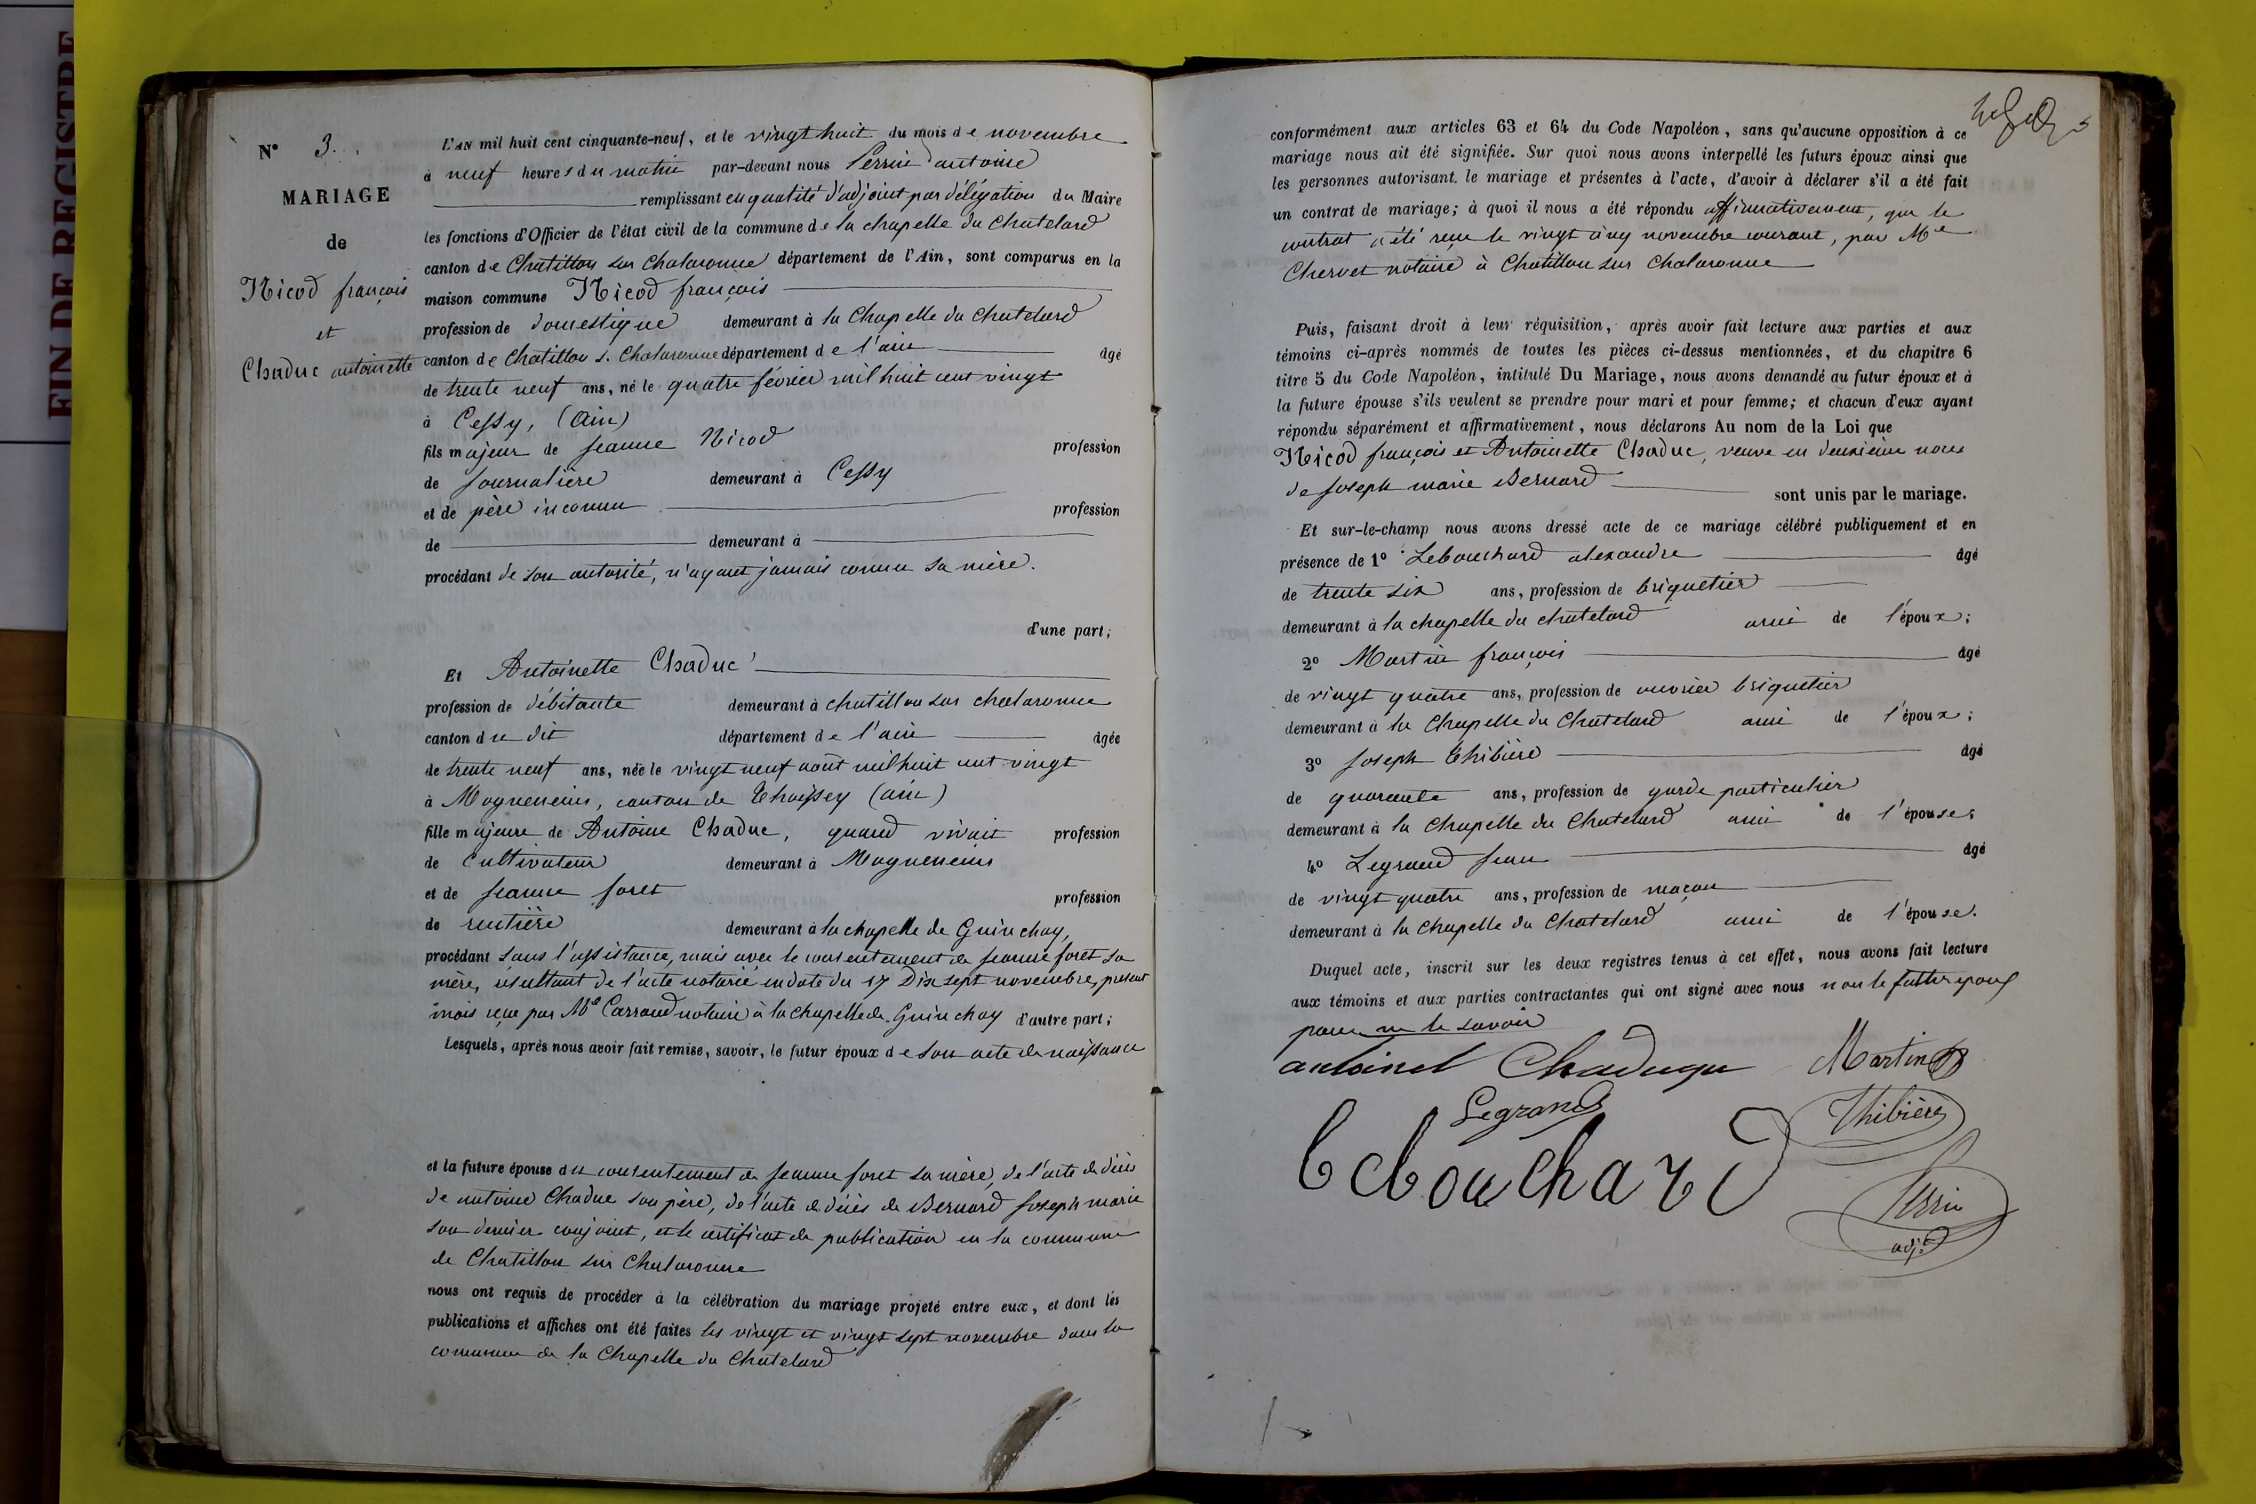 FIN DE REGISTRE
N° 3.
MARIAGE
de
Nicod françois
et
Chaduc antoinette
L'AN mil huit cent cinquante-neuf, et le vingt huit du mois de novembre
à neuf heures du matin par-devant nous Perrin antoine
remplissant en qualité d'adjoint par délégation du Maire
les fonctions d'Officier de l'état civil de la commune de la chapelle du Chatelard
canton de Chatillon sur Chalaronne département de l'Ain, sont comparus en la
maison commune Nicod françois
profession de domestique demeurant à la Chapelle du Chatelard
canton de Chatillon s. Chalaronne département de l'ain âgé
de trente neuf ans, né le quatre février mil huit cent vingt
à Cessy, (Ain)
fils majeur de jeanne Nicod profession
de journalière demeurant à Cessy
et de père inconnu profession
de demeurant à
procédant de son autorité, n'ayant jamais connu sa mère.
d'une part;
Et Antoinette Chaduc
profession de débitante demeurant à chatillon sur chalaronne
canton du dit département de l'ain âgée
de trente neuf ans, née le vingt neuf août mil huit cent vingt
à Mogneneins, canton de Thoissey (ain)
fille majeure de Antoine Chaduc, quand vivait profession
de Cultivateur demeurant à Mogneneins
et de jeanne foret profession
de rentière demeurant à la chapelle de Guinchay,
procédant sans l'assistance, mais avec le consentement de jeanne foret sa
mère, résultant de l'acte notarié en date du 17 Dix sept novembre, présent
mois reçu par Me Carraud notaire à la chapelle de Guinchay d'autre part;
Lesquels, après nous avoir fait remise, savoir, le futur époux de son acte de naissance
et la future épouse du consentement de jeanne foret sa mère, de l'acte de décès
de antoine Chaduc son père, de l'acte de décès de Bernard joseph marie
son dernier conjoint, et le certificat de publication en la commune
de Chatillon sur Chalaronne
nous ont requis de procéder à la célébration du mariage projeté entre eux, et dont les
publications et affiches ont été faites les vingt et vingt sept novembre dans la
commune de la Chapelle du Chatelard
conformément aux articles 63 et 64 du Code Napoléon, sans qu'aucune opposition à ce
mariage nous ait été signifiée. Sur quoi nous avons interpellé les futurs époux ainsi que
les personnes autorisant le mariage et présentes à l'acte, d'avoir à déclarer s'il a été fait
un contrat de mariage; à quoi il nous a été répondu affirmativement, que le
contrat a été reçu le vingt cinq novembre courant, par Me
Chervet notaire à Chatillon sur Chalaronne
Puis, faisant droit à leur réquisition, après avoir fait lecture aux parties et aux
témoins ci-après nommés de toutes les pièces ci-dessus mentionnées, et du chapitre 6
titre 5 du Code Napoléon, intitulé Du Mariage, nous avons demandé au futur époux et à
la future épouse s'ils veulent se prendre pour mari et pour femme; et chacun d'eux ayant
répondu séparément et affirmativement, nous déclarons Au nom de la Loi que
Nicod françois et Antoinette Chaduc, veuve en deuxième noces
de joseph marie Bernard sont unis par le mariage.
Et sur-le-champ nous avons dressé acte de ce mariage célébré publiquement et en
présence de 1° Lebouchard alexandre âgé
de trente six ans, profession de briquetier
demeurant à la chapelle du chatelard ami de l'époux;
2° Martin françois âgé
de vingt quatre ans, profession de ouvrier briquetier
demeurant à la Chapelle du Chatelard ami de l'époux;
3° joseph Thibière âgé
de quarante ans, profession de garde particulier
demeurant à la Chapelle du Chatelard ami de l'épouse;
4° Legrand jean âgé
de vingt quatre ans, profession de maçon
demeurant à la Chapelle du Chatelard ami de l'épouse.
Duquel acte, inscrit sur les deux registres tenus à cet effet, nous avons fait lecture
aux témoins et aux parties contractantes qui ont signé avec nous non le futur époux
pour ne le savoir
antoinet Chaduque Martin
Legrand Thibière
Lebouchard
Perrin
adjt